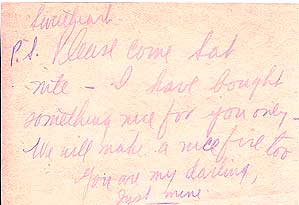 Sweetheart
P.S. Please come Sat
nite - I have bought
something nice for you only -
We will make a nice fire too
You are my darling,
Just mine.